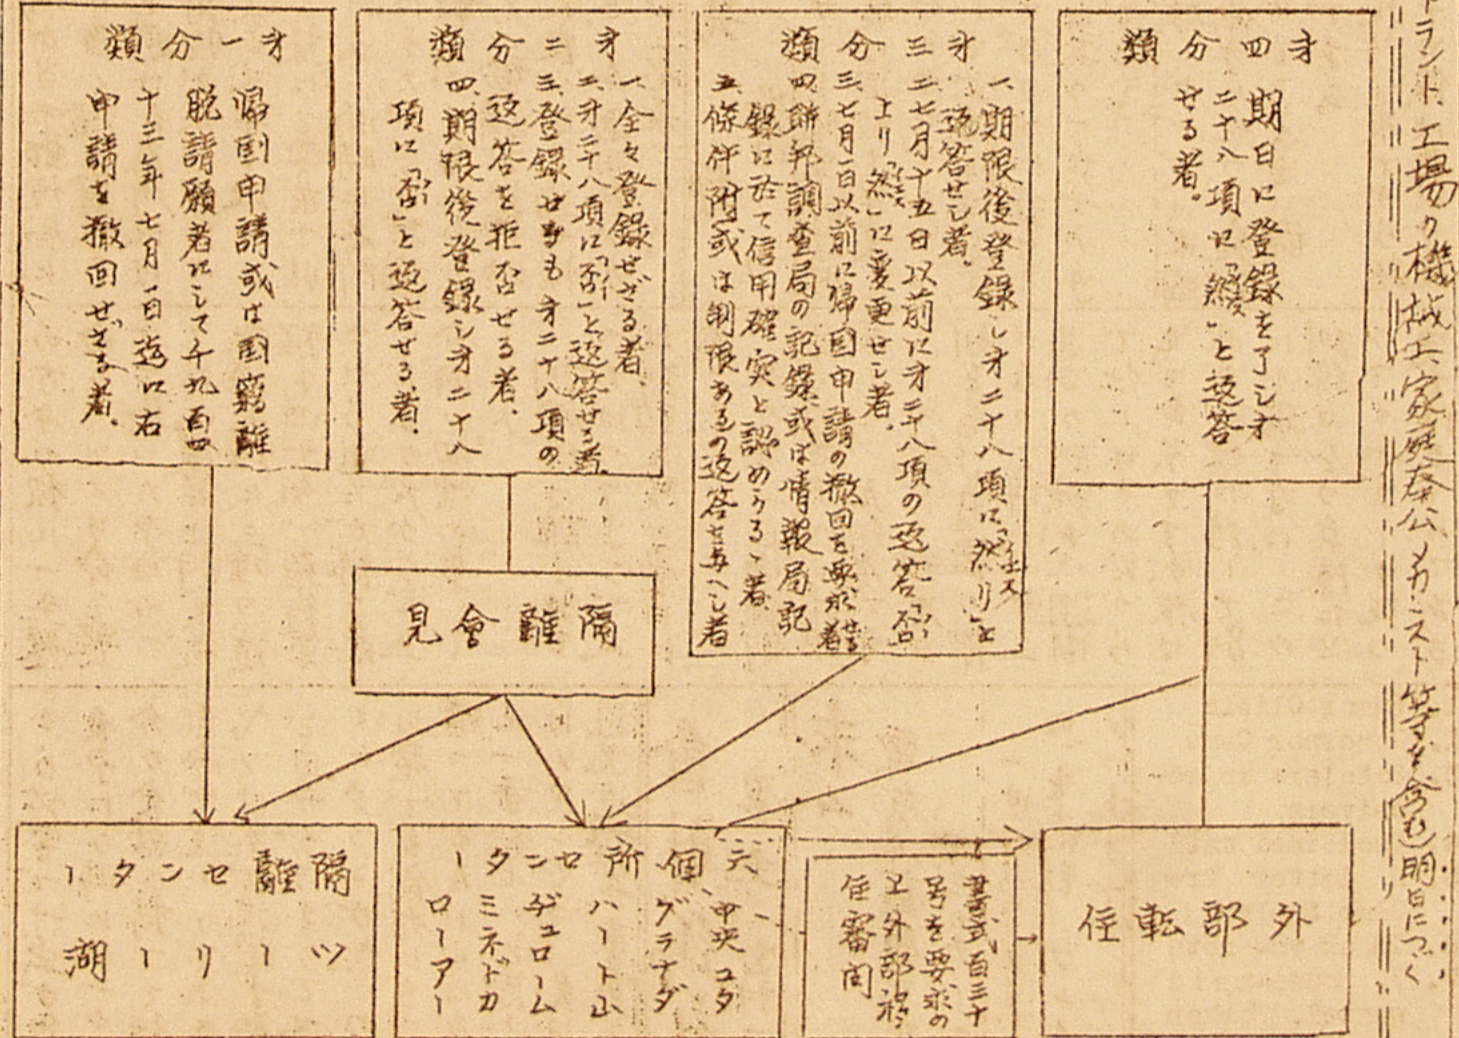 トラント、工場ノ機械工、家庭奉公、メカニスト等を含む)明日につづく
才四分類
期日に登録を了シ才
二十八項に「然」と返答
せる者。
才三分類
一、期限後登録し才二十八項に「然り」と
返答せし者。
二、七月十五日以前に才二十八項の返答「否」
より「然」に変更せし者。
三、七月一日以前に帰国申請の撤回を要求せる者
四、聯邦調査局の記録或は情報局記
録に於て信用確実と認めらるゝ者
五、條件附或は制限あるの返答を与へし者
才二分類
一、全々登録せざる者、
二、才二十八項に「否」と返答せる者。
三、登録せるも才二十八項の
返答を拒否せる者、
四、期限後登録シ才二十八
項に「否」と返答せる者、
才一分類
帰国申請或は国籍離
脱請願者にして千九百四
十三年七月一日迄に右
申請を撤回せざる者。
隔離會見
外部転住
書式百三十
号を要求の
上外部
住審問
六個所センター
中央ユタ
グラナダ
ハート山
ヂュローム
ミネドカ
ローアー
隔離センター
ツーリー湖